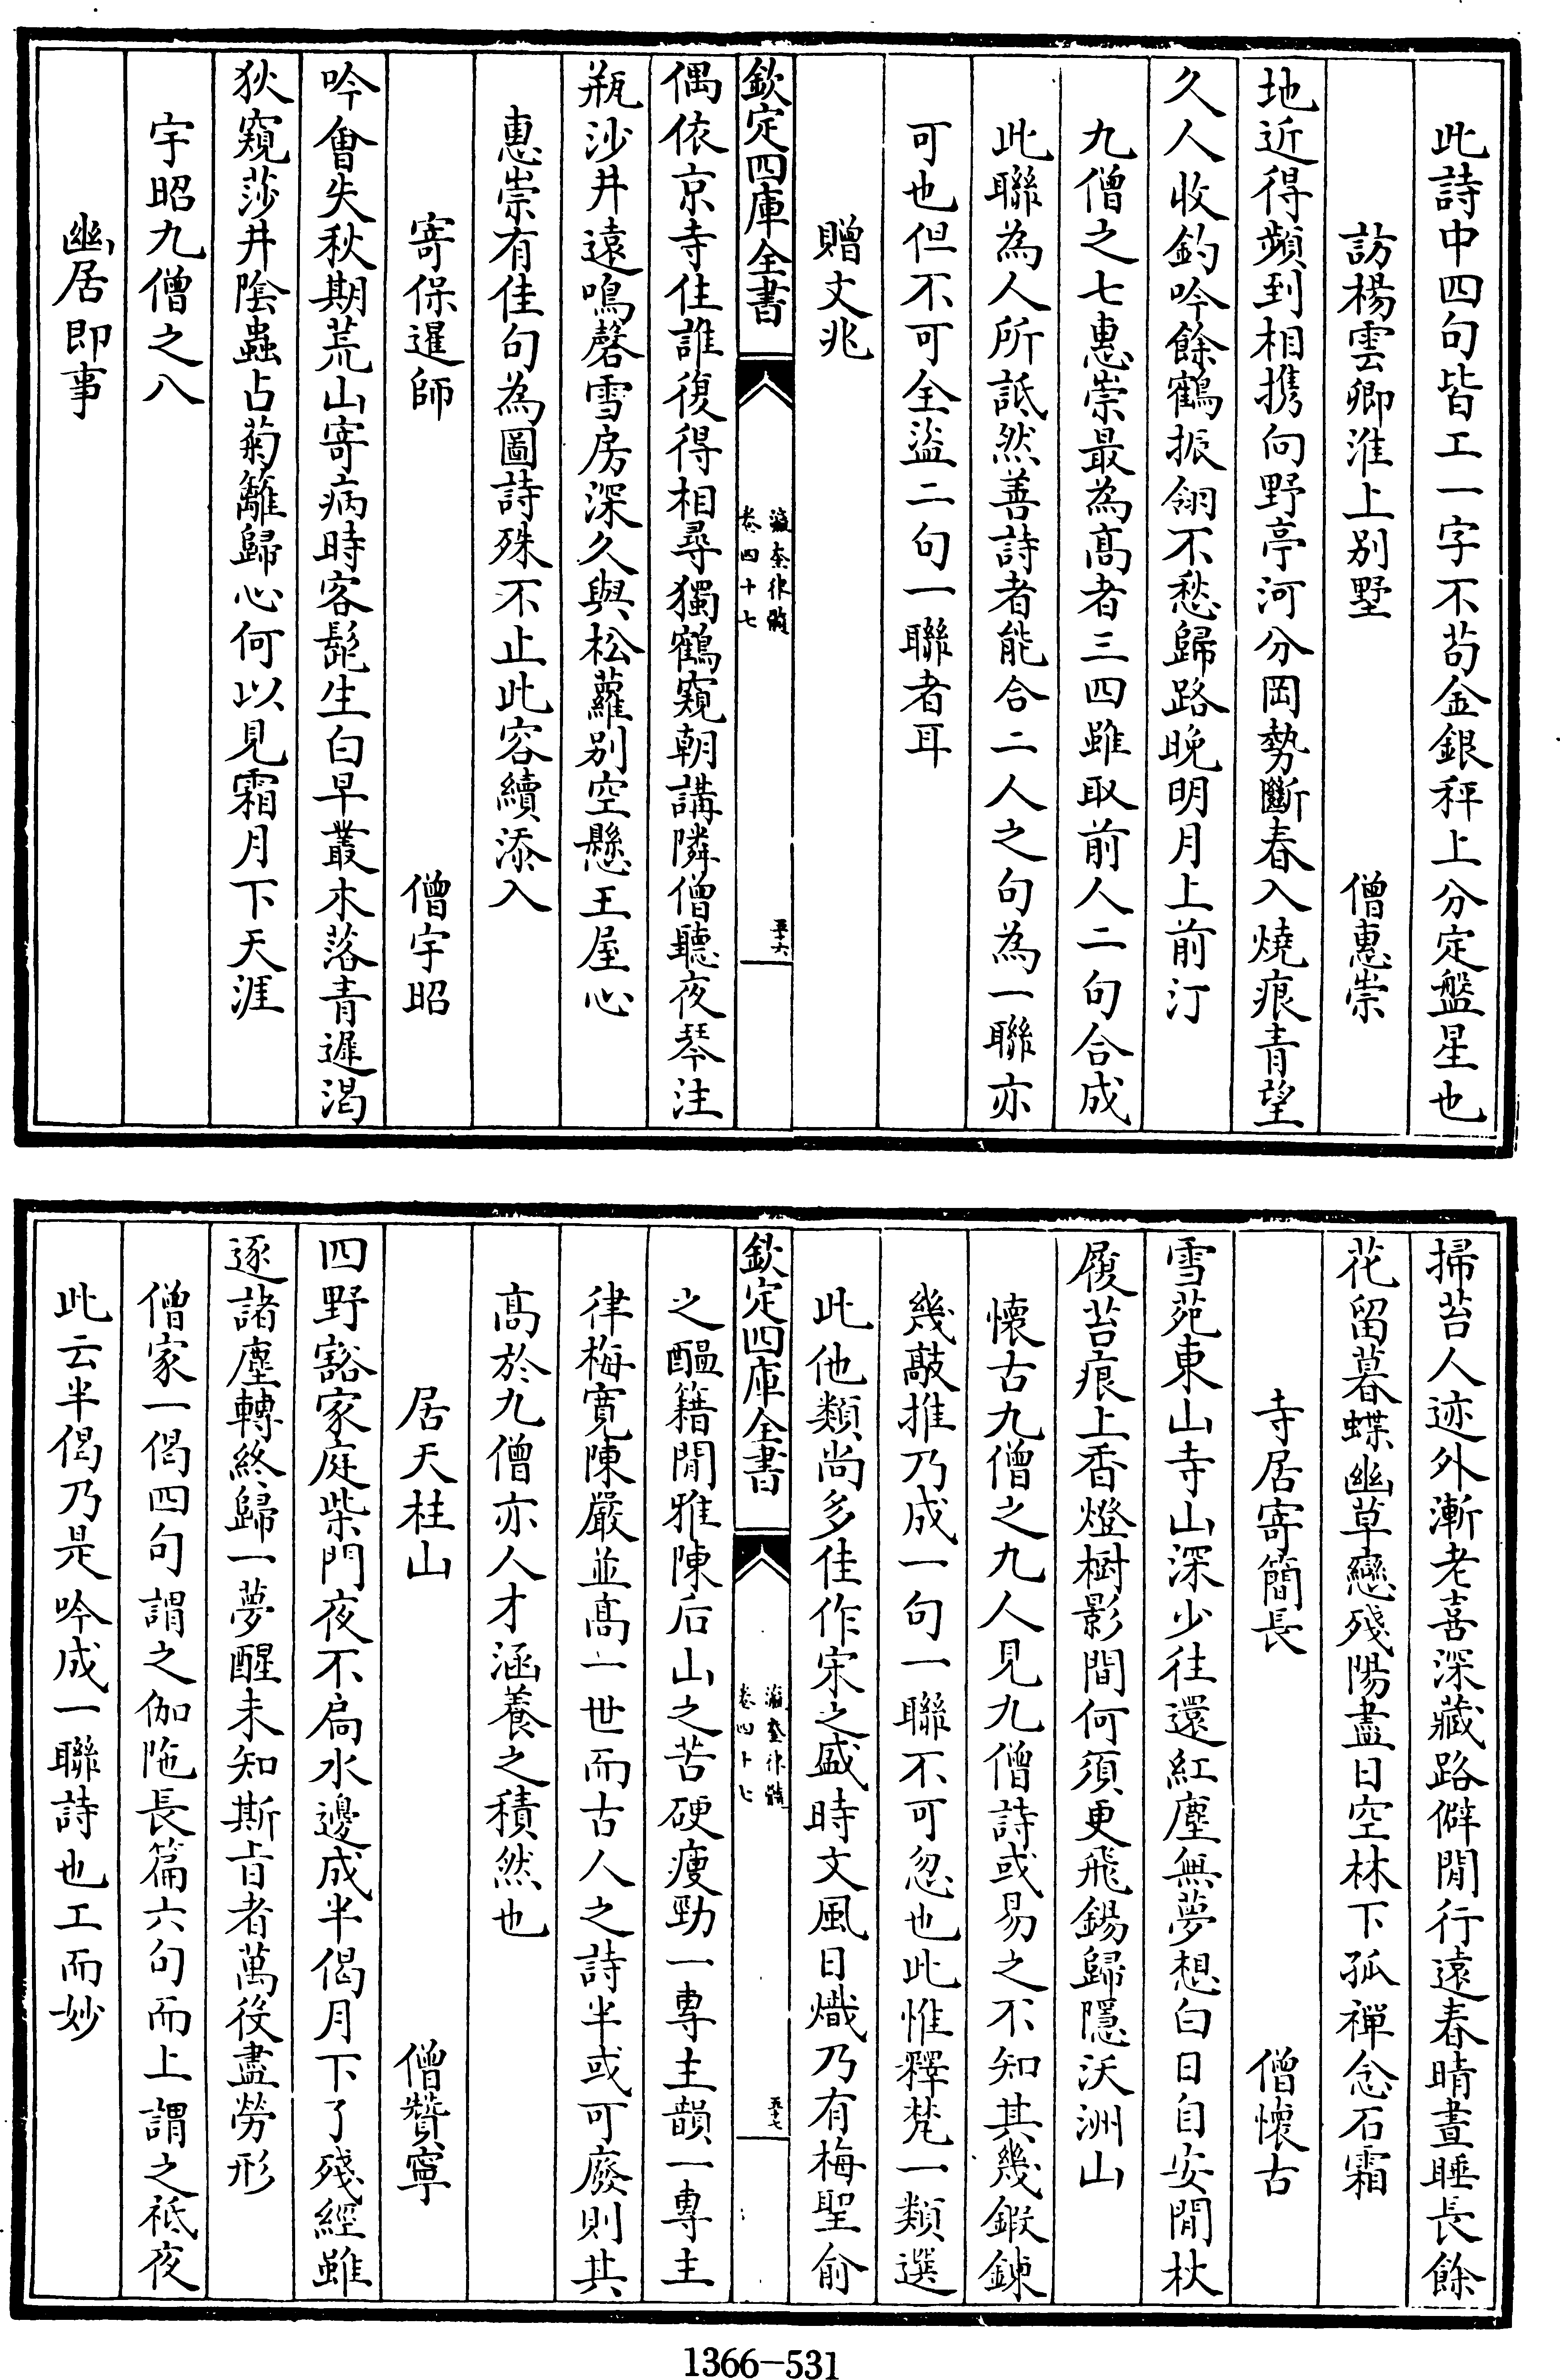 此詩中四句皆工一字不苟金銀秤上分定盤星也
訪楊雲卿淮上别墅 僧惠崇
地近得頻到相携向野亭河分岡勢斷春入燒痕青望
久人收釣吟餘鶴振翎不愁歸路晚明月上前汀
九僧之七惠崇最為髙者三四雖取前人二句合成
此聯為人所詆然善詩者能合二人之句為一聯亦
可也但不可全盜二句一聯者耳
贈文兆
欽定四庫全書
瀛奎律髓
卷四十七
五十六
偶依京寺住誰復得相尋獨鶴窺朝講隣僧聽夜琴注
瓶沙井遠鳴磬雪房深久與松蘿别空懸王屋心
惠崇有佳句為圖詩殊不止此容續添入
寄保暹師 僧宇昭
吟㑹失秋期荒山寄病時客髭生白早叢木落青遲渴
狄窺莎井陰蟲占菊籬歸心何以見霜月下天涯
宇昭九僧之八
幽居即事
掃苔人迹外漸老喜深藏路僻閒行遠春晴晝睡長餘
花留暮蝶幽草戀殘陽盡日空林下孤禪念石霜
寺居寄簡長 僧懷古
雪苑東山寺山深少往還紅塵無夢想白日自安閒杖
履苔痕上香燈樹影間何須更飛錫歸隱沃洲山
懷古九僧之九人見九僧詩或易之不知其幾鍛鍊
幾敲推乃成一句一聯不可忽也此惟釋梵一類選
此他類尚多佳作宋之盛時文風日熾乃有梅聖俞
欽定四庫全書
瀛奎律髓
卷四十七
五十七
之醖籍閒雅陳后山之苦硬瘦勁一專主韻一專主
律梅寛陳嚴並髙一世而古人之詩半或可廢則其
髙於九僧亦人才涵養之積然也
居天柱山 僧贊寧
四野豁家庭柴門夜不扃水邊成半偈月下了殘經雖
逐諸塵轉終歸一夢醒未知斯旨者萬役盡勞形
僧家一偈四句謂之伽陁長篇六句而上謂之祗夜
此云半偈乃是吟成一聯詩也工而妙
1366-531